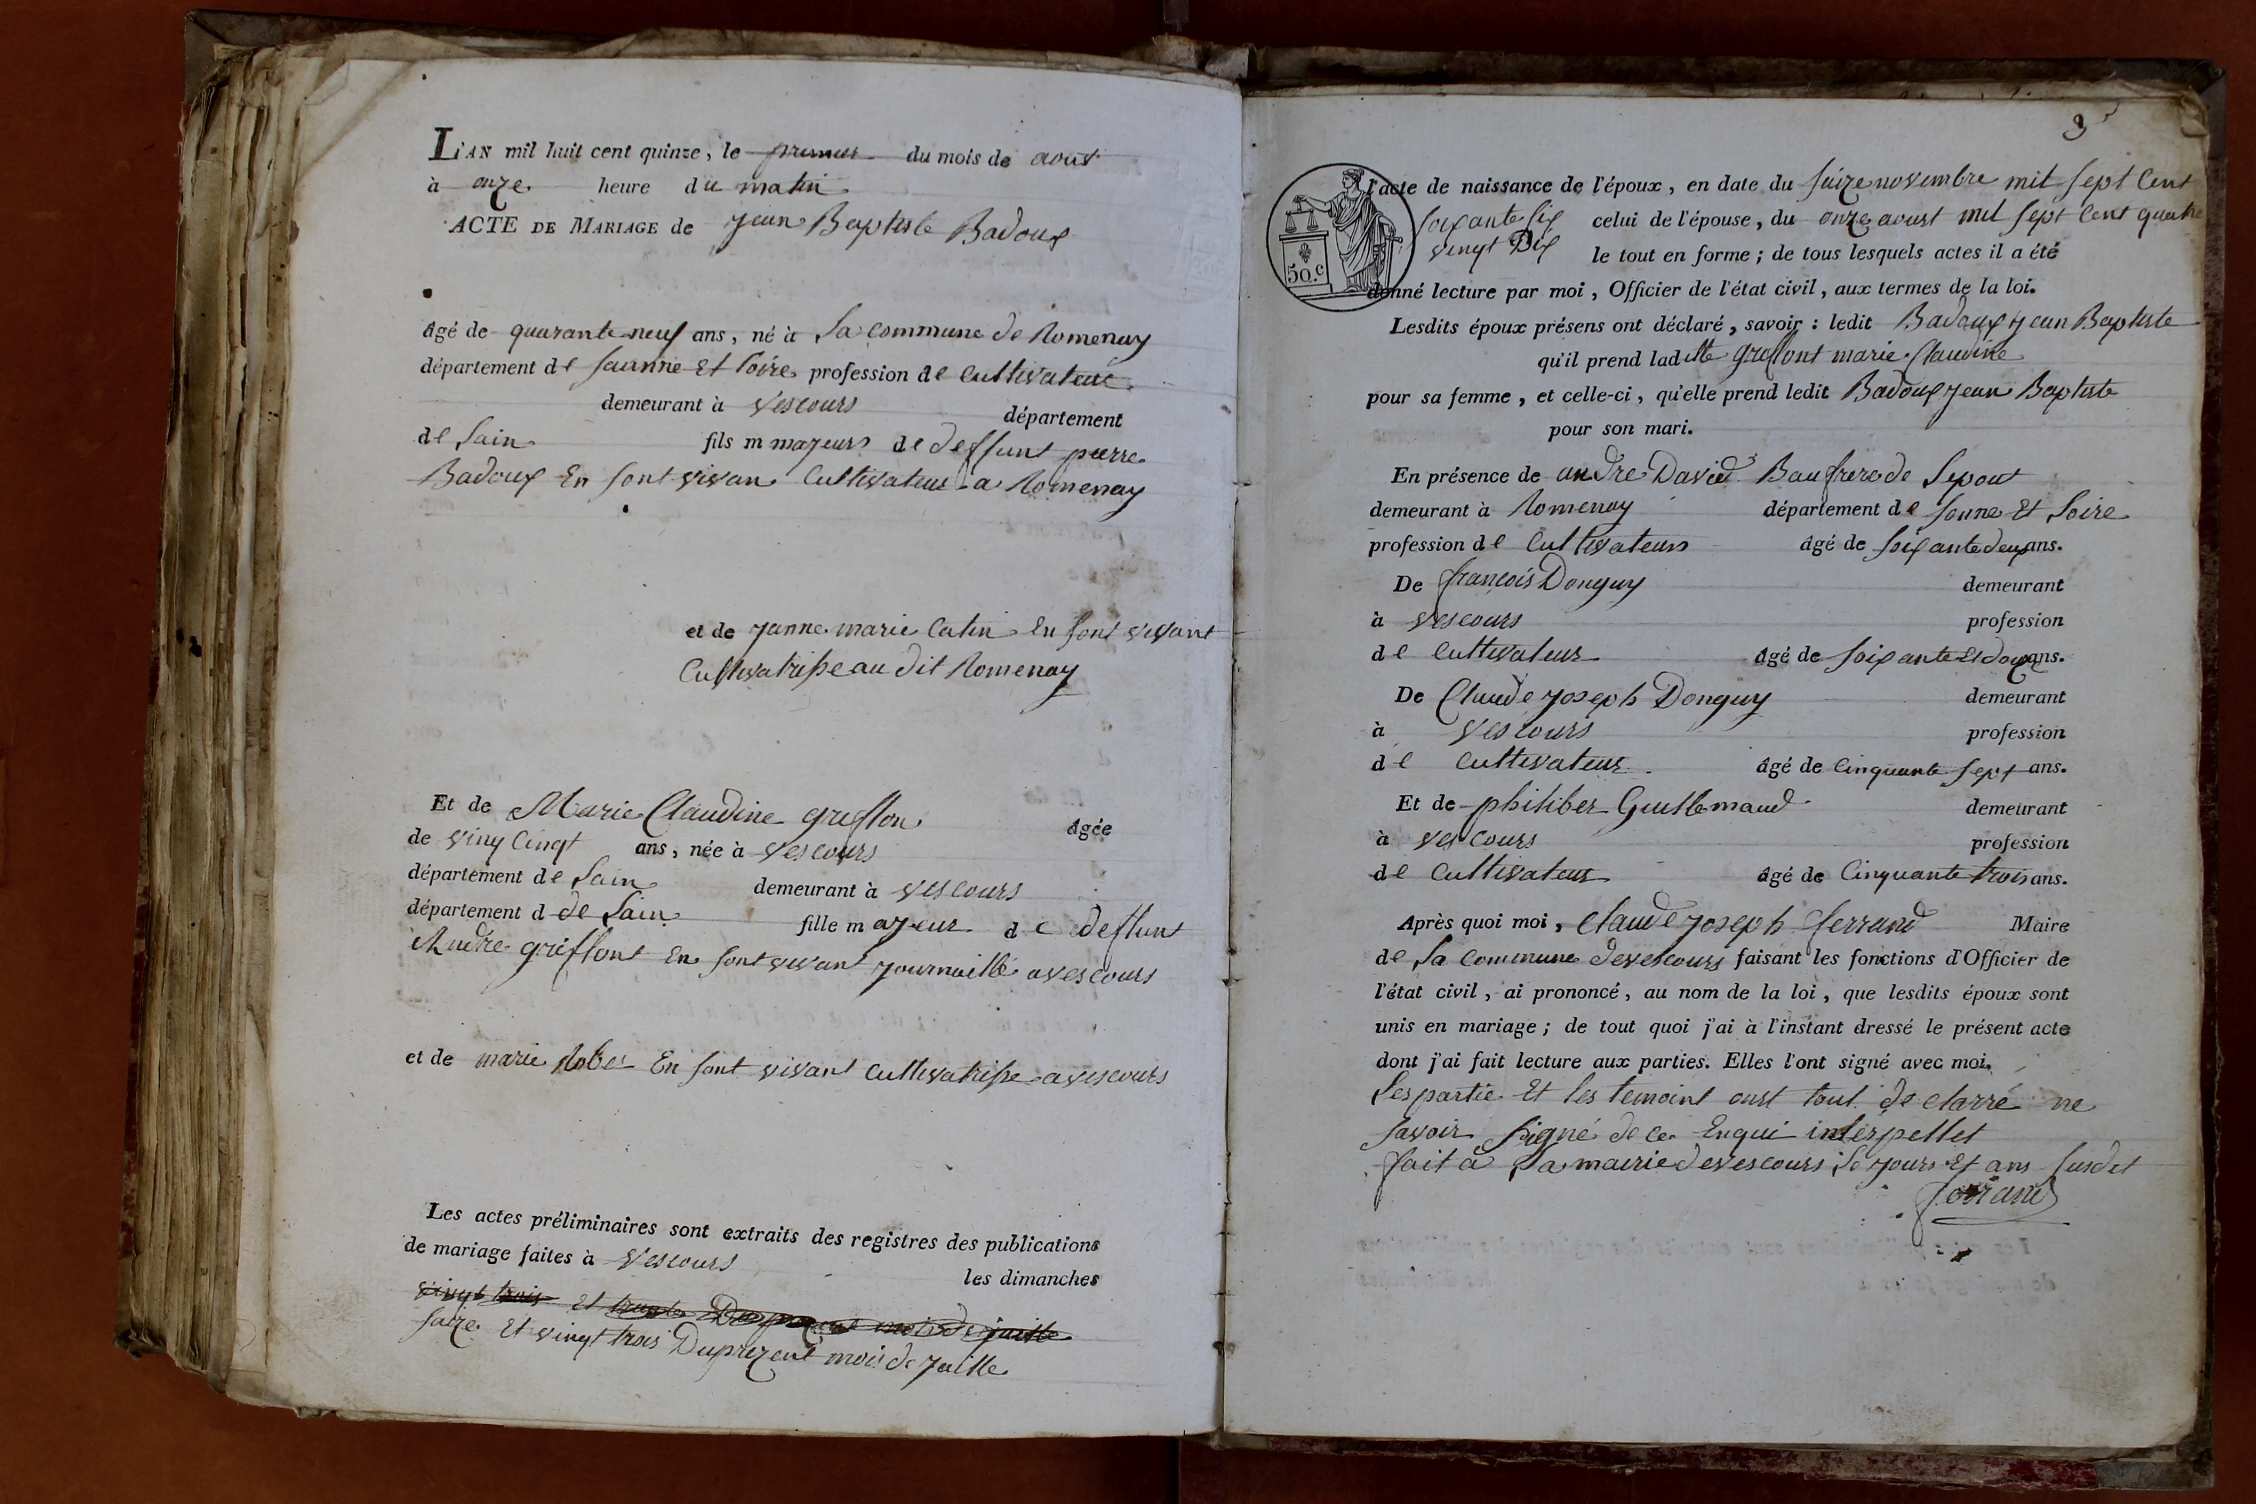 L'AN mil huit cent quinze, le premier du mois de aoust
à onze heure du matin
ACTE DE MARIAGE de Jean Baptiste Badoux
âgé de quarante neuf ans, né à la commune de Romenay
département de saunne Et loire profession de cultivateur
demeurant à vescours département
de lain fils m majeurs de deffunt pierre
Badoux En sont vivan Cultivateur a Romenay
et de janne marie Catin En sont vivant
Cultivatrisse au dit Romenay
Et de Marie Claudine greffon Agée
de ving Cinqt ans, née à vescours
département de lain demeurant à vescours
département d de lain fille m ajeur de deffunt
Andre griffont En sont vivant journaillé a vescours
et de marie Rober En sont vivant Cultivatrisse a vescours
Les actes préliminaires sont extraits des registres des publications
de mariage faites à vescours les dimanches
vingt trois Et trente Du prezent mois de juille
saize Et vingt trois Du prezent mois de juille
3
l'acte de naissance de l'époux, en date du saize novembre mil sept Cent
soixante six celui de l'épouse, du onze aoust mil sept Cent quatre
vingt Dix le tout en forme; de tous lesquels actes il a été
50.c
donné lecture par moi, Officier de l'état civil, aux termes de la loi.
Lesdits époux présens ont déclaré, savoir: ledit Badoux jean Baptiste
qu'il prend laditte greffont marie Claudine
pour sa femme, et celle-ci, qu'elle prend ledit Badoux jean Baptiste
pour son mari.
En présence de andre David Baufrere de Lepout
demeurant à Romenay département de sonne Et Loire
profession de Cultivateurs âgé de soixante deux ans.
De françois Donguy demeurant
à vescours profession
de Cultivateur âgé de soixante Et douze ans.
De Claude joseph Donguy demeurant
à vescours profession
de Cultivateur âgé de Cinquante sept ans.
Et de philiber Guillemaud demeurant
à vescours profession
de Cultivateur âgé de Cinquante trois ans.
Après quoi moi, Claude joseph ferrand Maire
de La Commune de vescours faisant les fonctions d'Officier de
l'état civil, ai prononcé, au nom de la loi, que lesdits époux sont
unis en mariage; de tout quoi j'ai à l'instant dressé le présent acte
dont j'ai fait lecture aux parties. Elles l'ont signé avec moi.
Les partie Et les temoint onst tout de clarré ne
savoir signé de ce Enqui interpellet
fait a La mairie de vescours Le jours Et ans susdit
ferrand